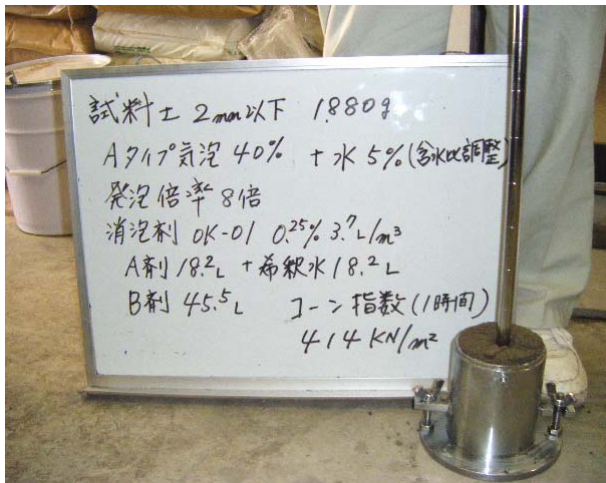 試料土 2mm以下 1880g
Aタイプ気泡 40% +水 5%(含水比調整)
発泡倍率 8倍
消泡剤 OK-01 0.25% 3.7L/m³
A剤 18.2L + 希釈水 18.2L
B剤 45.5L コーン指数(1時間)
414 KN/m²